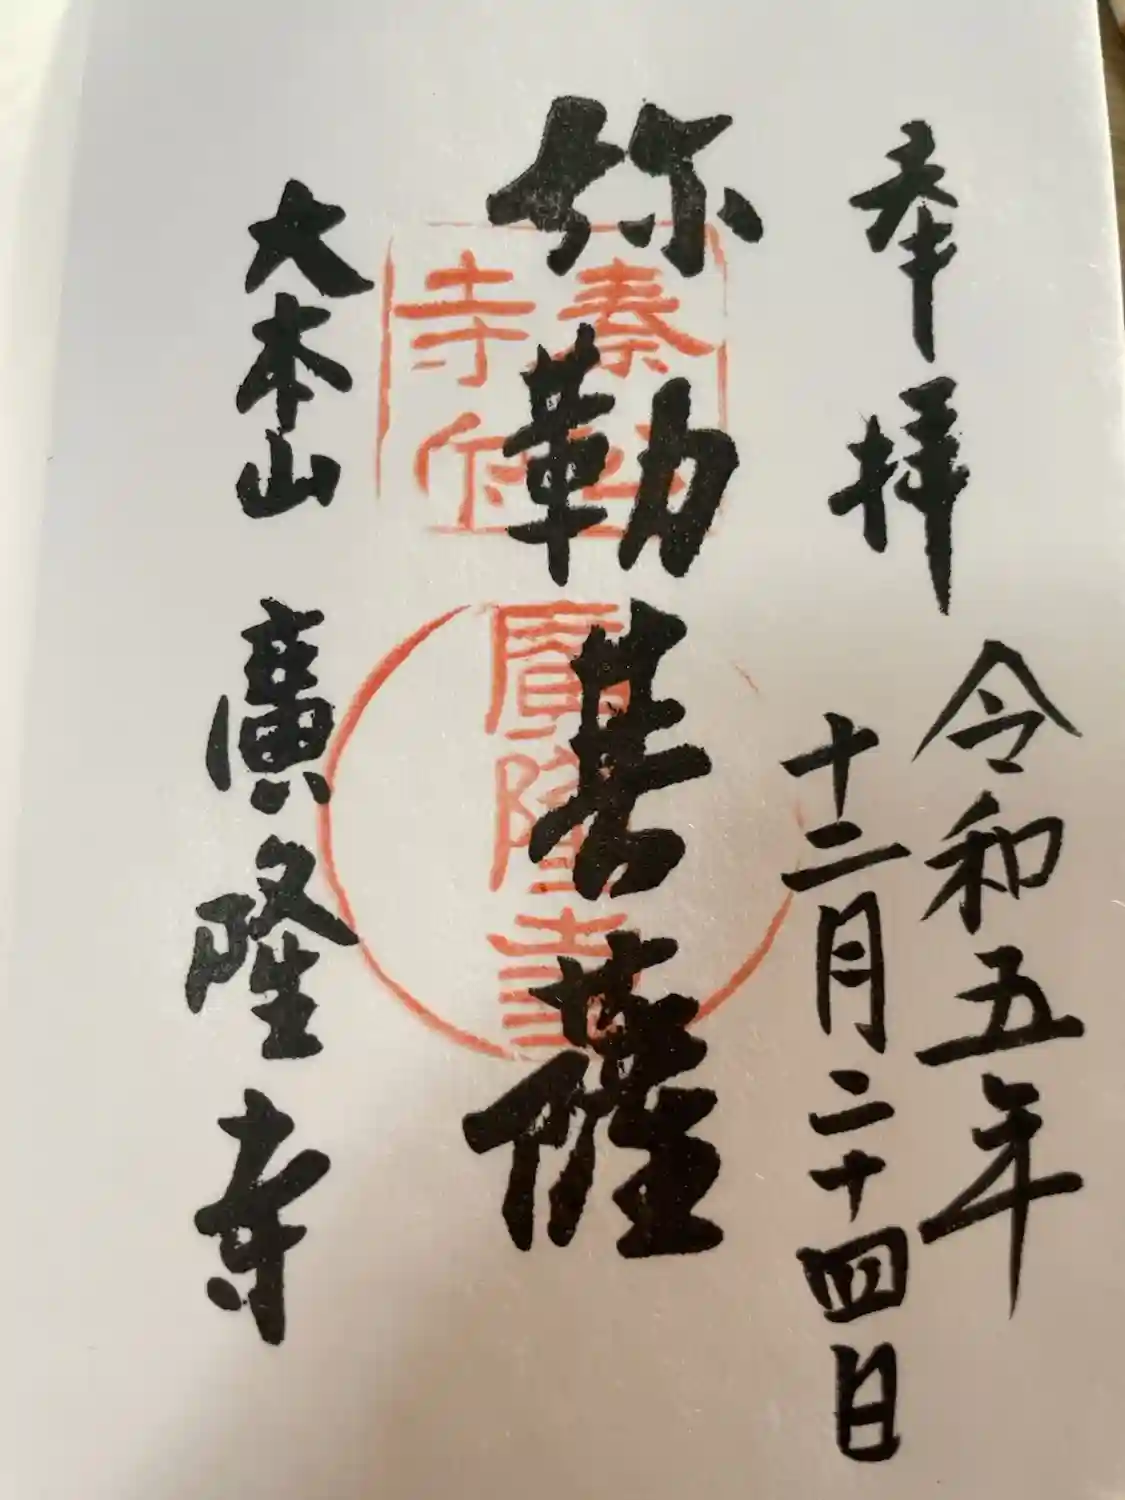 奉拝
令和五年
十二月二十四日
弥勒菩薩
大本山 廣隆寺
廣隆寺